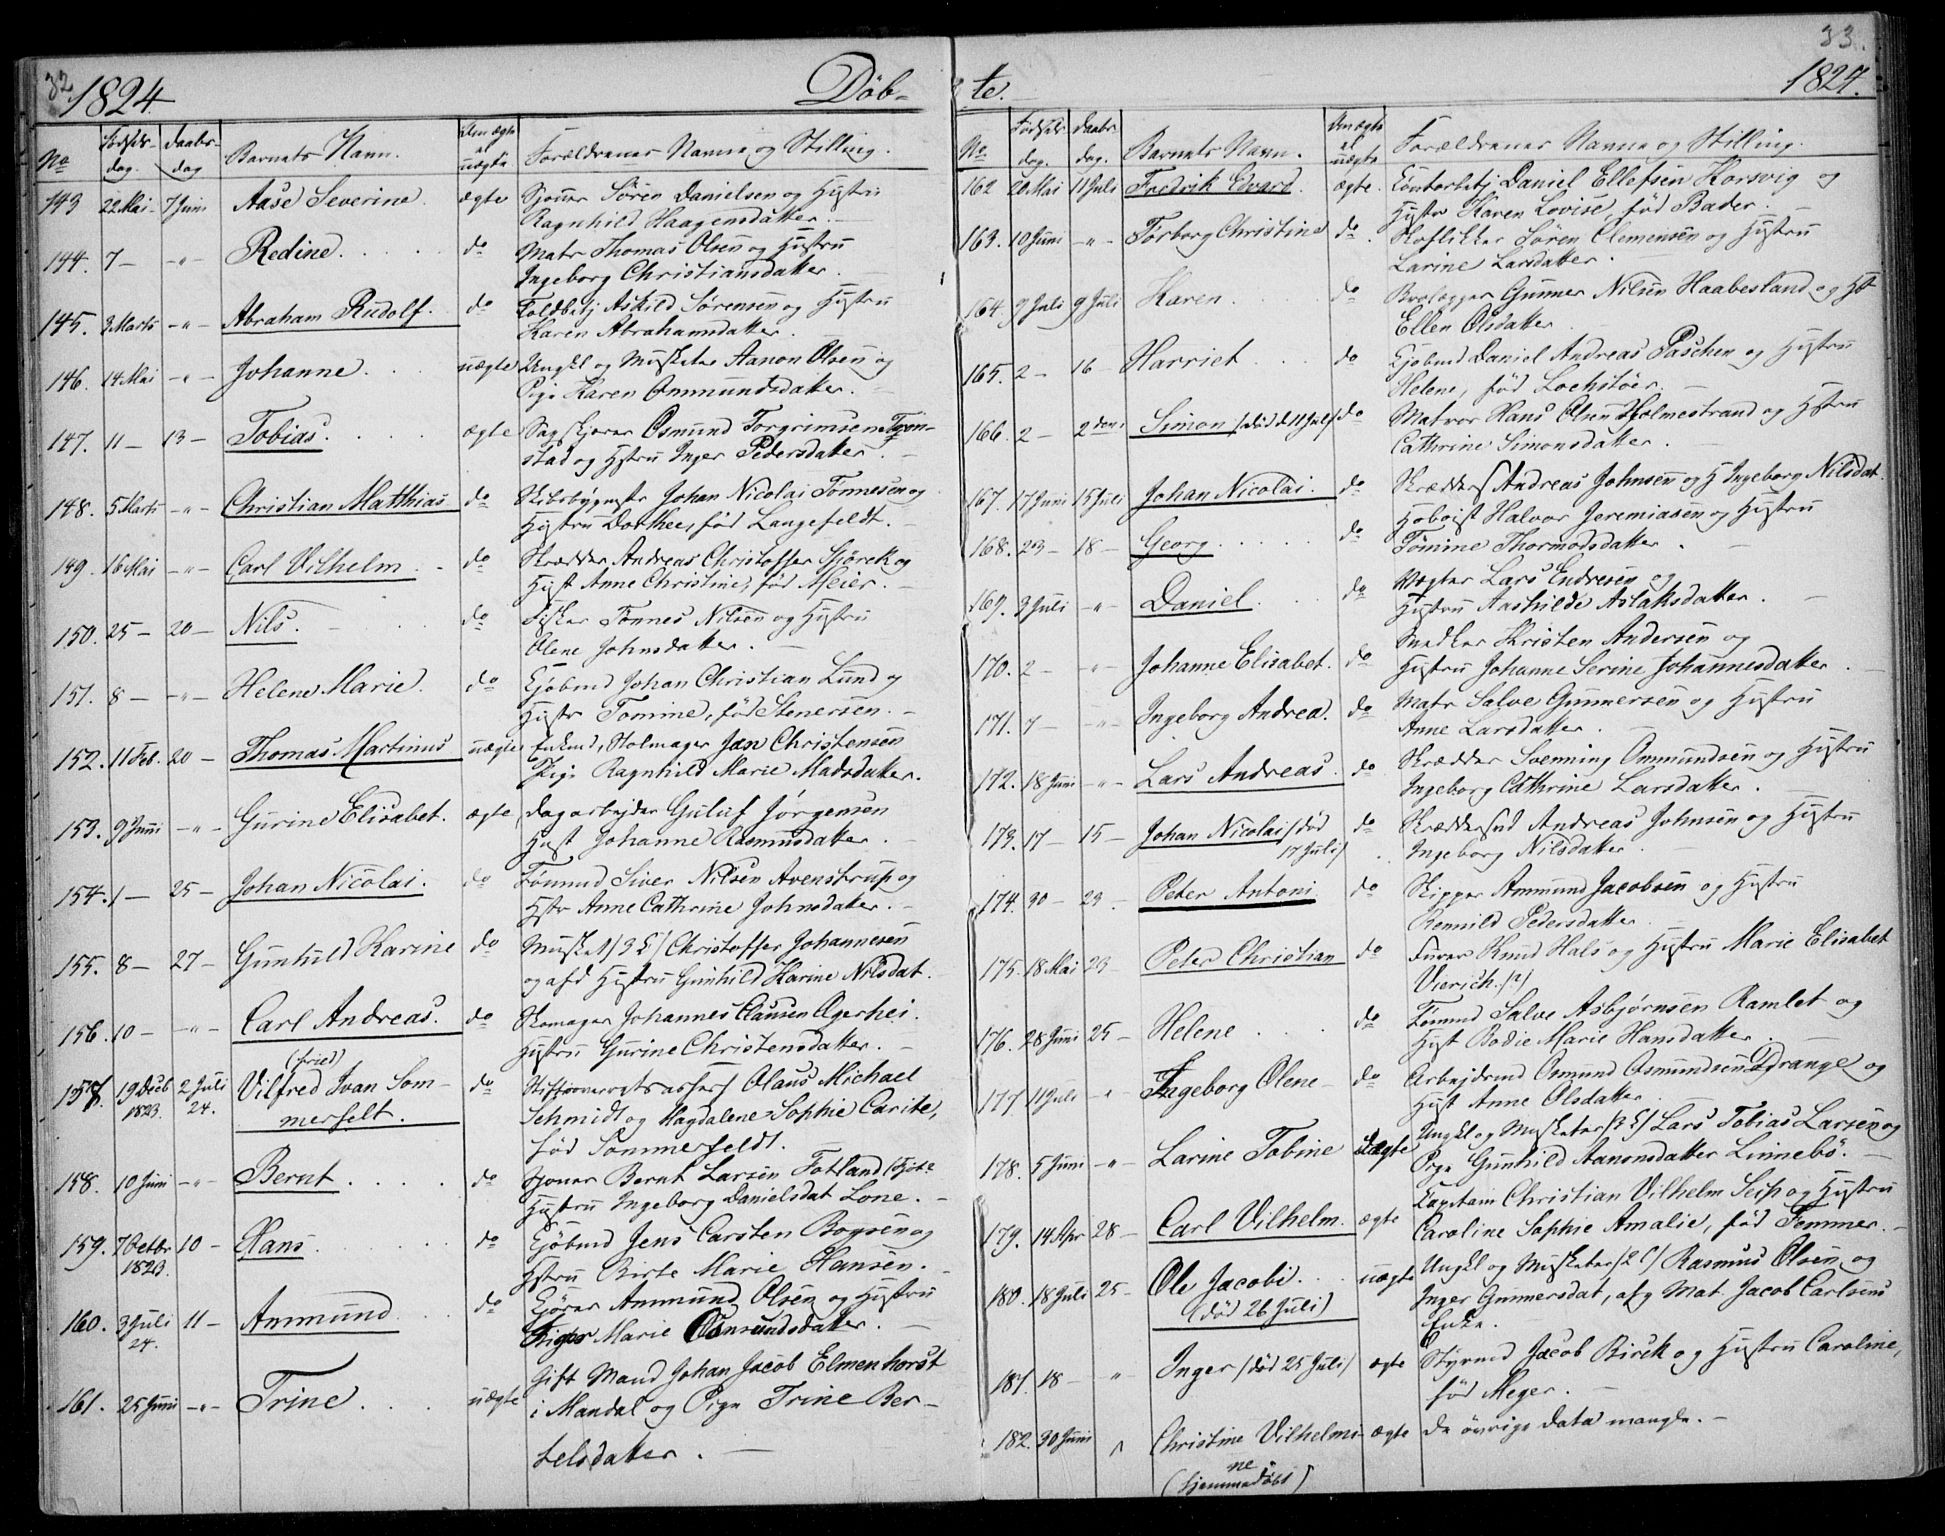 32.
1824.
Döb-
No
Födsels-
dag.
Daabs-
dag
Barnets Navn.
Om ægte
el
uægte
Forældrenes Navne og Stilling.
143 22 Mai - 7 Juni Aase Severine. ægte Sjouer Sören Danielsen og Hustru
Ragnhild Haagensdatter.
144. 7 - - " - Redine. do Matr Thomas Olsen og Hustru
Ingeborg Christiansdatter.
145. 3 Marts - " - Abraham Rudolf. do Toldbetj Askild Sørensen og Hustru
Karen Abrahamsdatter.
146. 14 Mai - " - Johanne. uægte Ungkl og Musketer Aanon Olsen og
Pige Karen Ommundsdatter.
147. 11 - 13 - Tobias. ægte Sagskjærer Osmund Torgrimsen Tjøn-
stad og Hstru Inger Pedersdatter.
148. 5 Marts - " - Christian Matthias do Skibsbygmstr Johan Nicolai Tönnesen og
Hustru Dorthee, född Langefeldt.
149. 16 Mai - " - Carl Vilhelm. do Skrædder Andreas Christoffer Sjörek og
Hust Anne Christine, född Meier.
150. 25 - 20 - Nils. do Fisker Tönnes Nilsen og Hustru
Olene Johnsdatter.
151. 8 - - " - Helene Marie. do Kjöbmd Johan Christian Lund og
Hustr Tomine, född Stenersen.
152. 11 Feb. 20 - Thomas Martinus uægte Enkemd, Stolmager Jan Christensen
Pige Ragnhild Marie Madsdatter.
153. 9 Juni - " - Gurine Elisabet. ægte Dagarbejder Guluf Jörgensen
Hust Johanne Rasmusdatter.
154. 1 - 25 - Johan Nicolai. do Tömmd Siver Nilsen Avenstrup og
Hstr Anne Cathrine Johnsdatter.
155. 8 - 27 - Gunhild Karine do Musket /3 C/ Christoffer Johannesen
og afd Hustru Gunhild Karine Nilsdat.
156. 10 - - " - Carl Andreas. do Skomager Johannes Clausen Ogerhei.
Hustru Gurine Christensdatter.
(fried)
157. 19 Decb 2 Juli Vilfred Ivan Som- do Stiftsoverretsassess Olaus Michael
1823. 24. merfelt. Schmidt og Magdalene Sophie Carite,
född Sommerfeldt.
158. 10 Juni - " - Bernt. do Sjouer Bernt Larsen Fotland
Hustru Ingeborg Danielsdat Lone.
159. 7 Octbr 10 - Hans. do Kjöbmd Jens Carsten Boysen og
1823. Hstru Birte Marie Hansen.
160. 3 Juli 11 - Ammund. do Kjörer Ammund Olsen og Hustru
24. Marie Osmundsdatter.
161. 25 Juni - " - Trine. uægte Gift Mand Johan Jacob Elmenhorst
i Mandal og Pige Trine Ber-
telsdatter.
33.
te.
1824.
No
Födsels
dag.
Daabs-
dag.
Barnets Navn.
Om ægte
el
uægte
Forældrenes Navne og Stilling.
162 20 Mai 11 Juli Fredrik Edvard. ægte. Contorbetj Daniel Ellefsen Korsvig og
Hustr Karen Lovise, född Bader.
163. 10 Juni - " - Törborg Christine do Skoflikker Sören Clemensen og Hustru
Larine Larsdatter.
164. 9 Juli 9 Juli Karen. do Brolægger Gunner Nilsen Haabesland og Hst
Ellen Olsdatter
165. 2 - 16 - Harriet do Kjöbmd Daniel Andreas Paschen og Hustru
Helene, född Lochstöer.
166. 2 - 2 Simon /död d 11 Juli/ do Matros Hans Olsen Holmestrand og Hstru
Cathrine Simonsdatter.
167. 17 Juni 15 Juli Johan Nicolai. do Skrædders Andreas Johnsen og H Ingeborg Nilsdat.
168. 23 - 18 - Georg. do Hoboist Halvor Jeremiasen og Hustru
Tömine Thormodsdatter.
169. 3 Juli - " - Daniel. do Vægter Lars Endresen og
Hustru Aashilde Aslaksdatter.
170. 2 - - " - Johanne Elisabet. do Snedker Kristen Andersen og
Hustru Johanne Serine Johannesdatter
171. 7 - - " - Ingeborg Andrea. do Matr Salve Gunnersen og Hustru
Anne Larsdatter.
172. 18 Juni - " - Lars Andreas. do Skrædder Svenning Ommundsen og Hustru
Ingeborg Cathrine Larsdatter.
173. 17 - 15 - Johan Nicolai /död do Skræddersvd Andreas Johnsen og Hustru
17 Juli/ Ingeborg Nilsdatter.
174. 30 - 23 - Peter Antoni do Skipper Ammund Jacobsen og Hustru
Remild Pedersdatter.
175. 18 Mai 23 Peter Christian do Furer Knud Hals og Hustru Marie Elisabet
Vierich. /?/
176. 28 Juni 25 - Helene do Tömmd Salve Asbjørnsen Ramlet og
Hust Bodie Marie Hansdatter.
177 11 Juli " Ingeborg Olene - do Arbejdsmd Osmund Osmundsen Drange og
Hust Anne Olsdatter
178. 5 Juni - " - Larine Tobine uægte Ungkl og Musketer /2 C/ Lars Tobias Larsen og
Pige Gunhild Aanonsdatter Linnebö.
179. 14 Apr 28 - Carl Vilhelm. ægte Kapitain Christian Vilhelm Seip og Hustru
Caroline Sophie Amalie, född Femmer.
180. 18 Juli 25 - Ole Jacobi. uægte Ungkl og Musketer /2 C/ Rasmus Olsen og
(död 26 Juli) Inger Gunnersdat, afg Mat. Jacob Carlsens
Enke.
181. 18 - " Inger /död 25 Juli/ ægte Styrmd Jacob Birck og Hustru Caroline,
född Meger.
182. 30 Juni " Christine Vilhelmi- ægte De övrige Data mangle. -
ne
(hjemmedöbt)